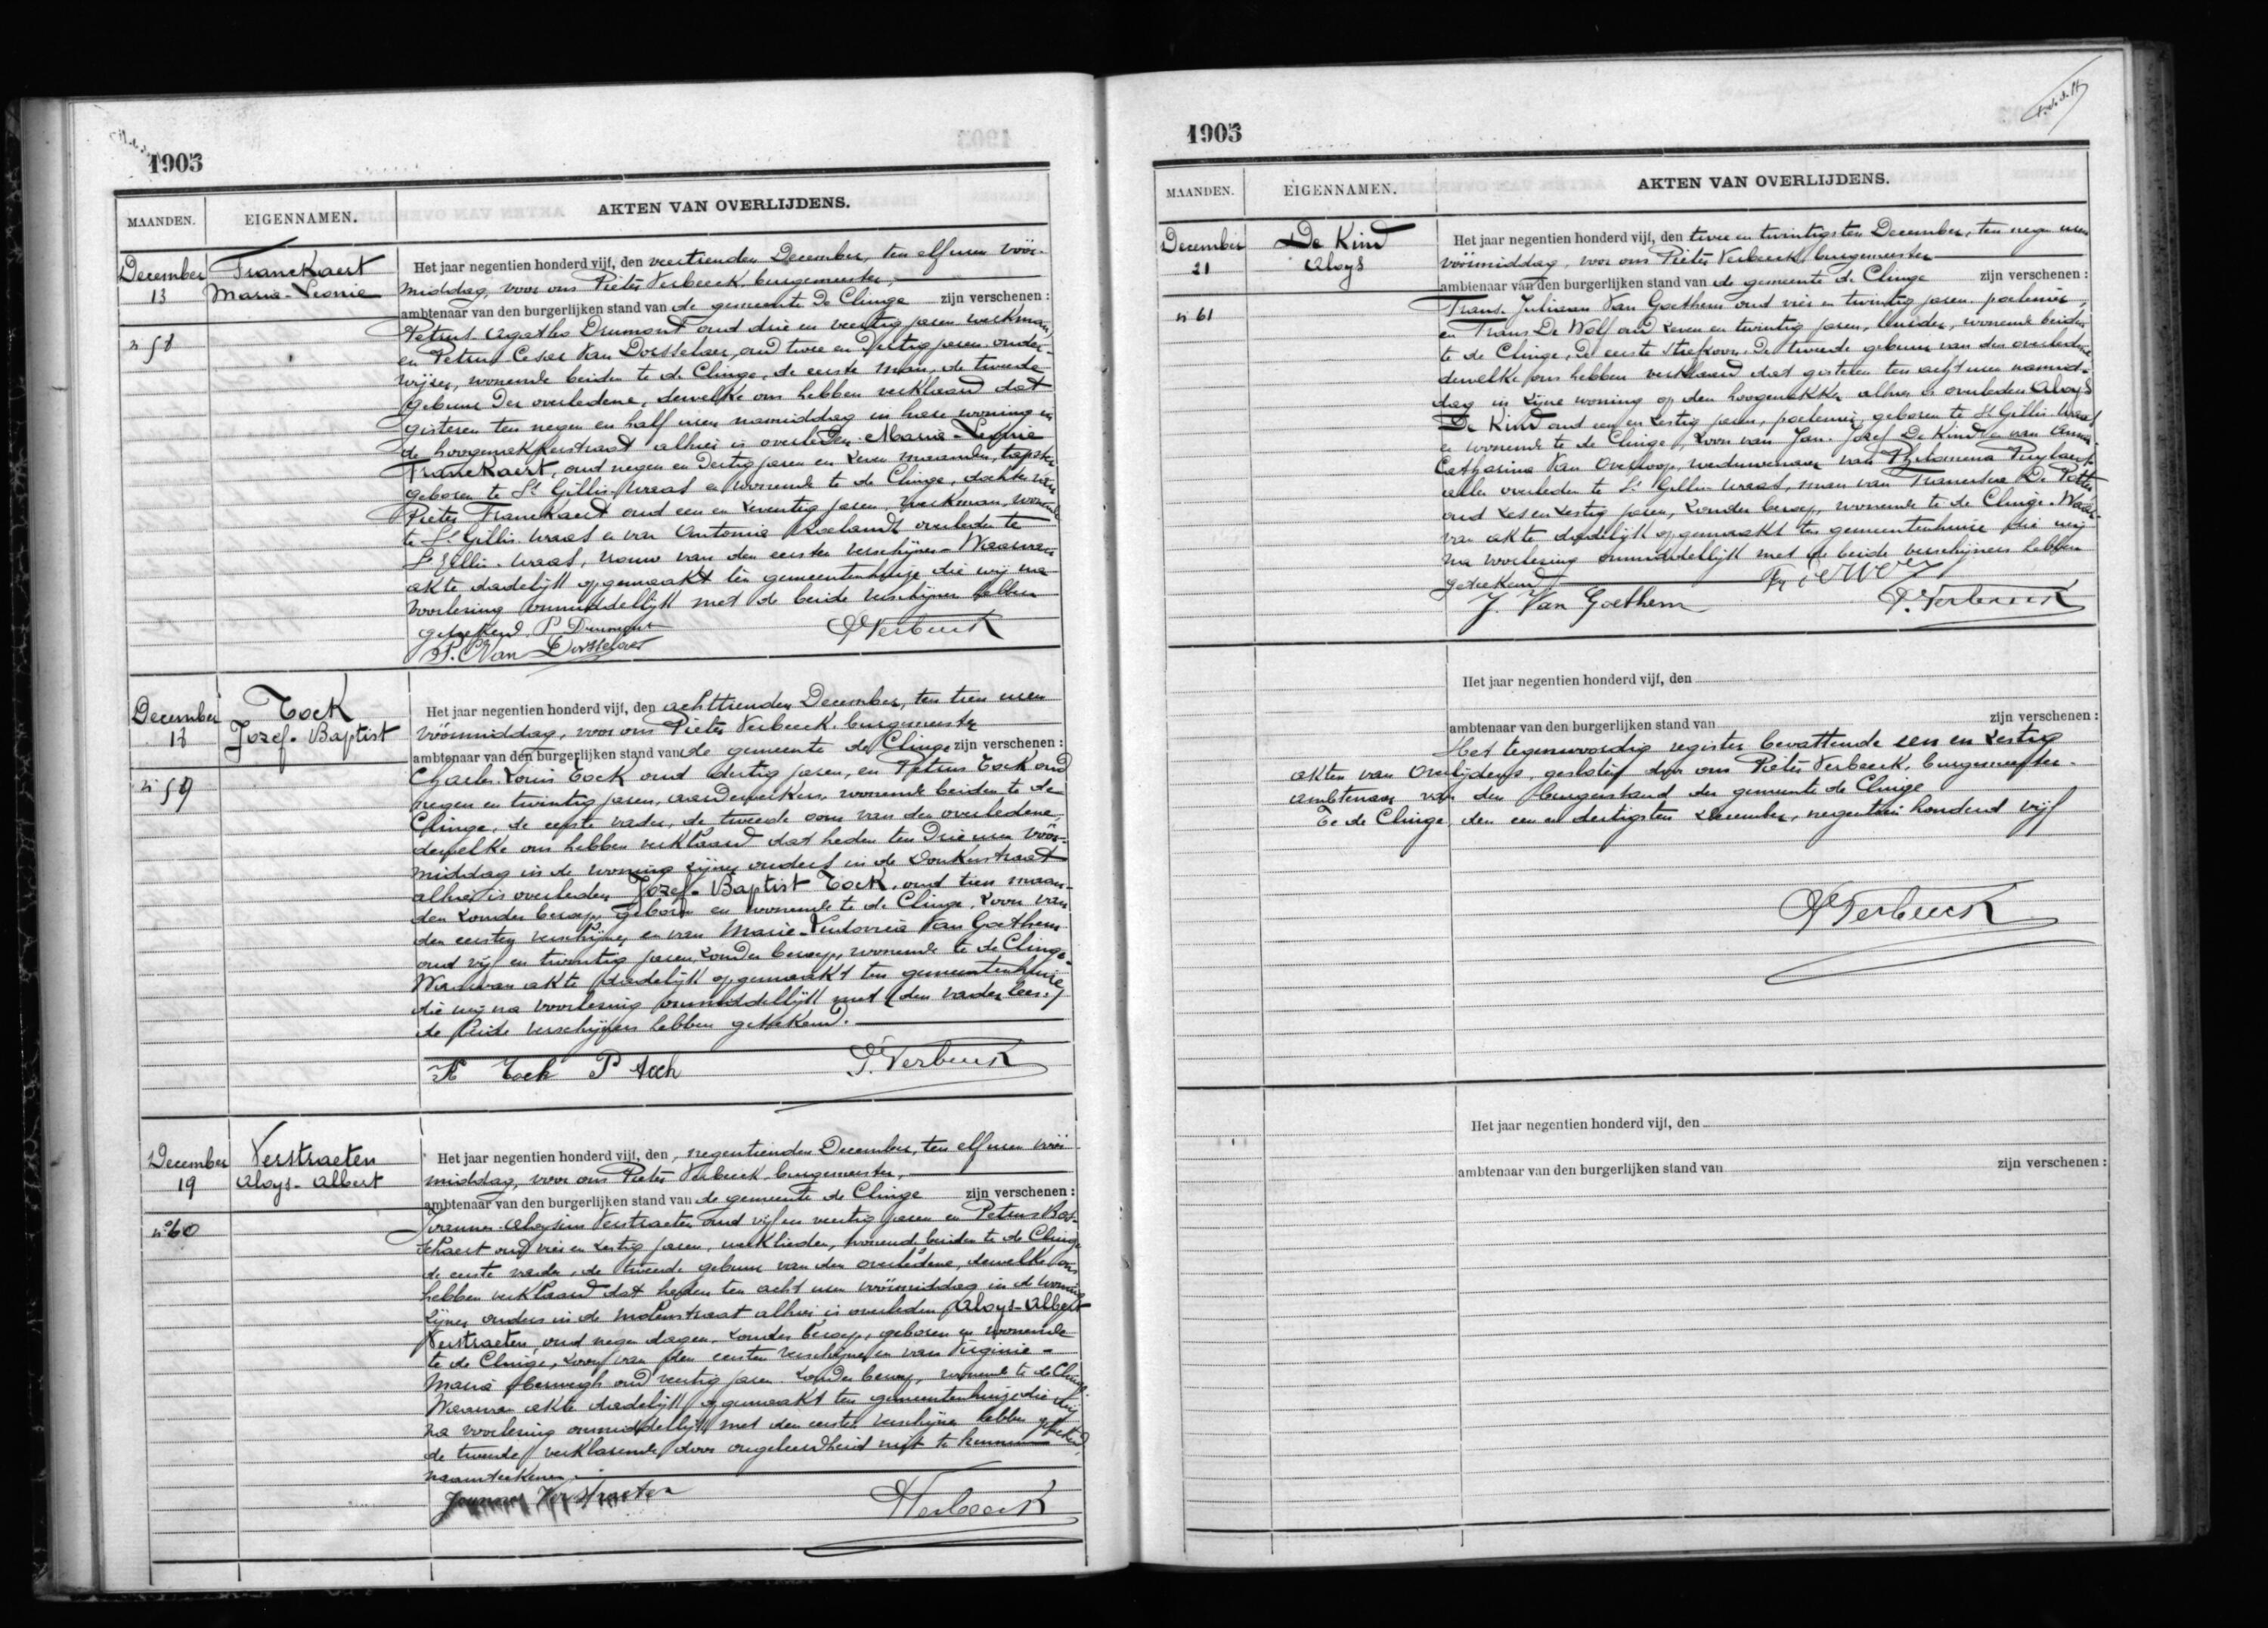 1905
MAANDEN.
EIGENNAMEN.
AKTEN VAN OVERLIJDENS.
December
13
Franckaert
Maria-Leonie
n 58
Het jaar negentien honderd vijf, den veertienden December, ten elf uren voor-
middag, voor ons Pieter Verbeeck, burgemeester,
ambtenaar van den burgerlijken stand van de gemeente De Clinge zijn verschenen :
Petrus-Agatho Drumont oud drie en veertig jaren werkman,
en Petrus-Cesar Van Dorsselaer, oud twee en dertig jaren onder-
wijzer, wonende beiden te de Clinge, de eerste man, de tweede
gebuur der overledene, dewelke ons hebben verklaard dat
gisteren ten negen en half uren namiddag in hare woning in
de hoogenakkerstraat alhier is overleden Maria-Leonie
Franckaert, oud negen en dertig jaren en zeven maanden,
geboren te St Gillis-Waas en wonende te de Clinge, dochter van
Pieter Franckaert oud een en zeventig jaren, werkman, wonende
te St Gillis-Waas en van Antonia Roelandt overleden te
St Gillis-Waas, vrouw van den eersten verschijner. Waarvan
akte dadelijk opgemaakt ten gemeentenhuize die wij na
voorlezing onmiddellijk met de beide verschijners hebben
geteekend. P Drumont
P. C Van Dorsselaer
P Verbeeck
December
18
Tock
Jozef-Baptist
n 59
Het jaar negentien honderd vijf, den achttienden December, ten tien uren
vóórmiddag, voor ons Pieter Verbeeck, burgemeester
ambtenaar van den burgerlijken stand van de gemeente de Clinge zijn verschenen :
Charles-Louis Tock oud dertig jaren, en Petrus Tock oud
negen en twintig jaren, aardewerkers, wonende beiden te de
Clinge, de eerste vader, de tweede oom van den overledene,
dewelke ons hebben verklaard dat heden ten drie uren vóór-
middag in de woning zijner ouders in de Donkerstraat
alhier is overleden Jozef-Baptist Tock, oud tien maan-
den zonder beroep, geboren en wonende te de Clinge, zoon van
den eersten verschijner en van Marie- Van Goethem
oud vijf en twintig jaren, zonder beroep, wonende te de Clinge.
Waarvan akte dadelijk opgemaakt ten gemeentenhuize
die wij na voorlezing onmiddellijk met den vader
de beide verschijners hebben geteekend.
K Tock P Tock
P. Verbeeck
December
19
Verstraeten
Aloys-Albert
n° 60
Het jaar negentien honderd vijf, den negentienden December, ten elf uren vóór
middag, voor ons Pieter Verbeeck burgemeester,
ambtenaar van den burgerlijken stand van de gemeente de Clinge zijn verschenen :
Joannes-Aloysius Verstraeten oud vijf en veertig jaren en Petrus
oud vier en zestig jaren, werklieden, wonende beiden te de Clinge
de eerste vader, de tweede gebuur van den overledene, dewelke ons
hebben verklaard dat heden ten acht uren vóórmiddag in de woning
zijner ouders in de molenstraat alhier is overleden Aloys-Albert
Verstraeten, oud negen dagen, zonder beroep, geboren en wonende
te de Clinge, zoon van den eersten verschijner en van Virginie-
Maria oud veertig jaren zonder beroep, wonende te de Clinge.
Waarvan akte dadelijk opgemaakt ten gemeentenhuize die wij
na voorlezing onmiddellijk met den eersten verschijner hebben geteekend,
de tweede verklarende door ongeleerdheid niet te kunnen
naamteekenen.
Joannes Verstraeten
P Verbeeck
1905
MAANDEN.
EIGENNAMEN.
AKTEN VAN OVERLIJDENS.
December
21
De Kind
Aloys
n 61
Het jaar negentien honderd vijf, den twee en twintigsten December, ten negen uren
vóórmiddag, voor ons Pieter Verbeeck, burgemeester
ambtenaar van den burgerlijken stand van de gemeente de Clinge zijn verschenen :
Frans-Juliaan Van Goethem oud vier en twintig jaren, poelenier,
en Frans De Wolf oud zeven en twintig jaren, wonende beiden
te de Clinge, de eerste stiefzoon, de tweede gebuur van den overledene
dewelke ons hebben verklaard dat gisteren ten acht uren namid-
dag in zijne woning op den hoogenakker alhier is overleden Aloys
De Kind oud een en zestig jaren, poelenier, geboren te St Gillis-Waas
en wonende te de Clinge, zoon van Jan-Jozef De Kind en van Anna-
Catharina Van Overloop, weduwenaar van Philomena Puylaert
allen overleden te St Gillis-Waas, man van Francisca De Potter
oud zes en zestig jaren, zonder beroep, wonende te de Clinge. Waar-
van akte dadelijk opgemaakt ten gemeentenhuize die wij
na voorlezing onmiddellijk met de beide verschijners hebben
geteekend
J. Van Goethem
P. Verbeeck
Het jaar negentien honderd vijf, den
ambtenaar van den burgerlijken stand van zijn verschenen :
Het tegenwoordig register bevattende een en zestig
akten van Overlijdens, gesloten door ons Pieter Verbeeck, burgemeester-
ambtenaar van den burgerstand der gemeente de Clinge
Te de Clinge, den een en dertigsten December, negentien honderd vijf
P Verbeeck
Het jaar negentien honderd vijf, den
ambtenaar van den burgerlijken stand van zijn verschenen :